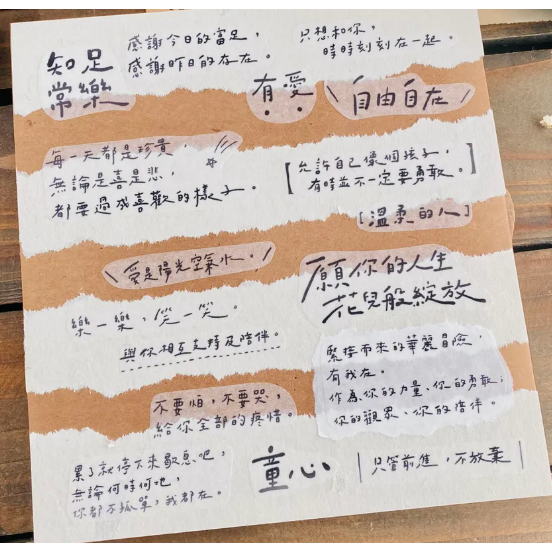 知足
常樂
感謝今日的富足，
感謝昨日的存在。
只想和你，
時時刻刻在一起。
有愛
\ 自由自在 /
每一天都是珍貴，
無論是喜是悲，
都要過成喜歡的樣子。
[允許自己像個孩子，
有時並不一定要勇敢。]
[溫柔的人]
\ 愛是陽光空氣水。/
願你的人生
花兒般綻放
樂一樂，笑一笑。
與你相互支持及陪伴。
緊接而來的華麗冒險，
有我在。
作為你的力量、你的勇敢；
你的觀眾、你的陪伴。
不要怕，不要哭，
給你全部的疼惜。
累了就停下來歇息吧，
無論何時何地，
你都不孤單，我都在。
童心
|只管前進，不放棄|